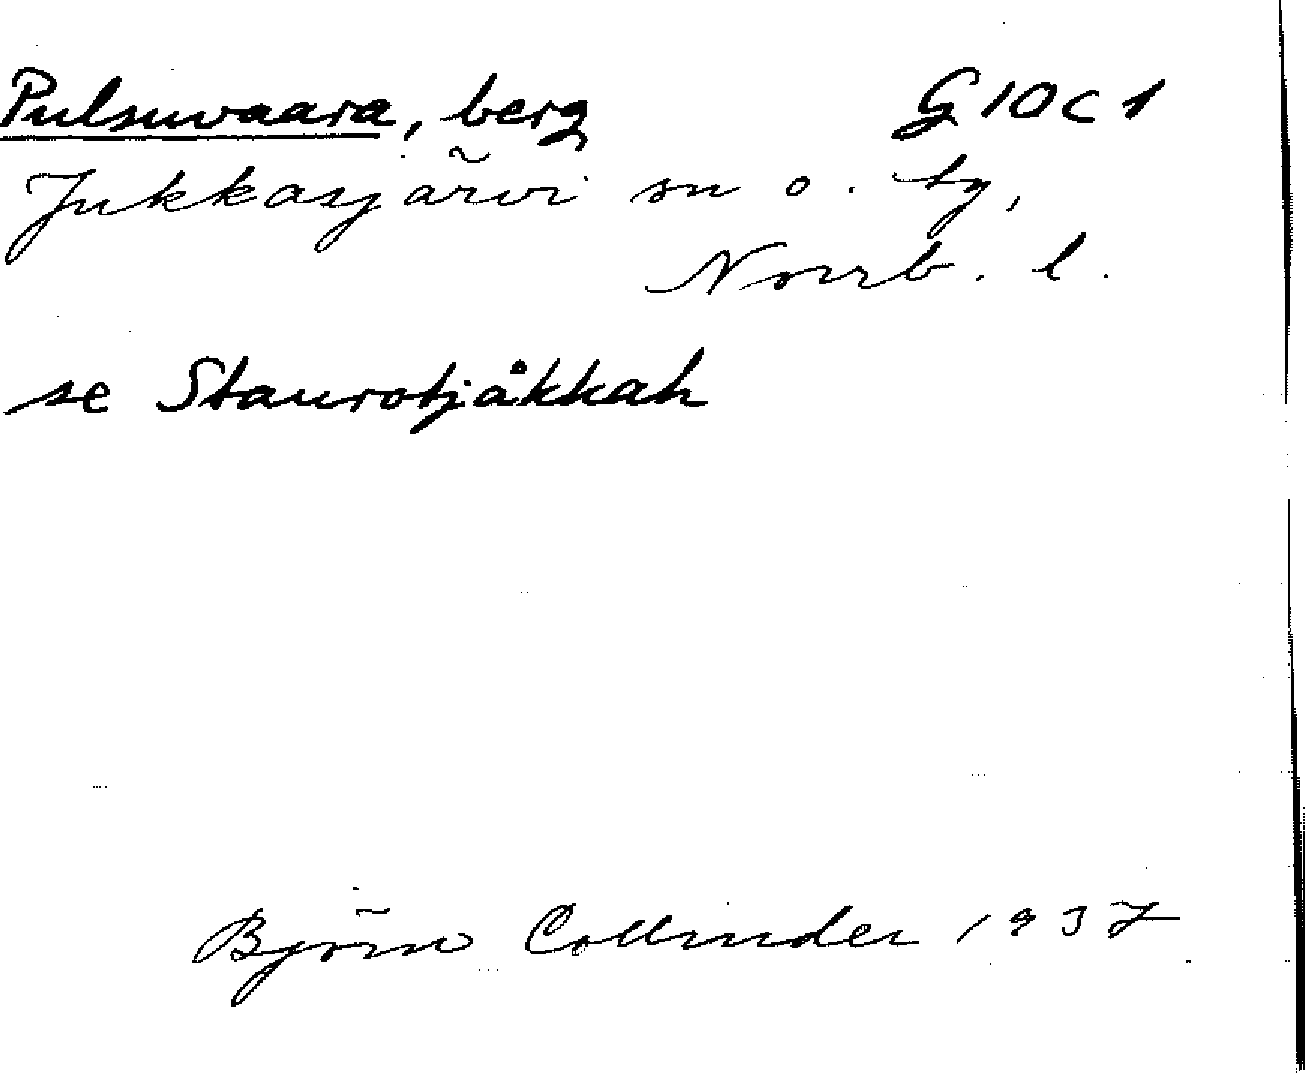 Pulsuvaara, berg G 10 c 1
Jukkasjärvi sn o. tg,
Norrb. l.
se Staurotjåkkah
Björn Collinder 1937